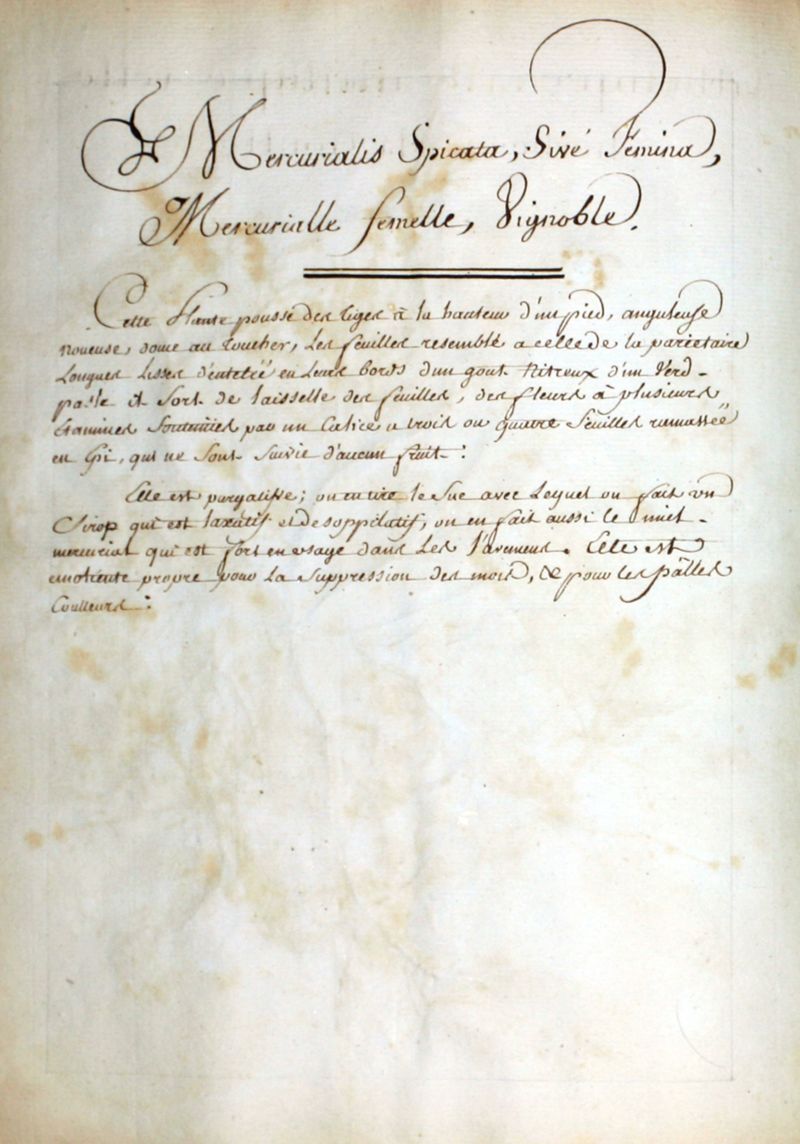 Mercurialis Spicata, Sivé Fémina,
Mercurialle femelle, Vignoble.
Cette Plante pousse des tiges à la hauteur d'un pied, anguleuse
noueuse, douce au toucher, Les feuilles resemble a celle de la parietaire
Longues Lisses dentelée en Leurs bords d'un gout Nitreux d'un Verd
pasle il Sort de laisselle des feuilles, des fleurs à plusieurs
étamines Soutenües par un Calice a trois ou quatre feuilles ramassée
en Epi, qui ne Sont Suivie d'aucun fruit :
Elle est purgatifve ; on en tire le Suc avec Lequel on fait un
Sirop qui est laxatif et desoppilatif, on en fait aussi le miel
mercurial qui est fort en usage dans Les Lavemens. Elle est
emoliente propre pour La Suppression des mois, & pour les pâlles
Coulleurs :